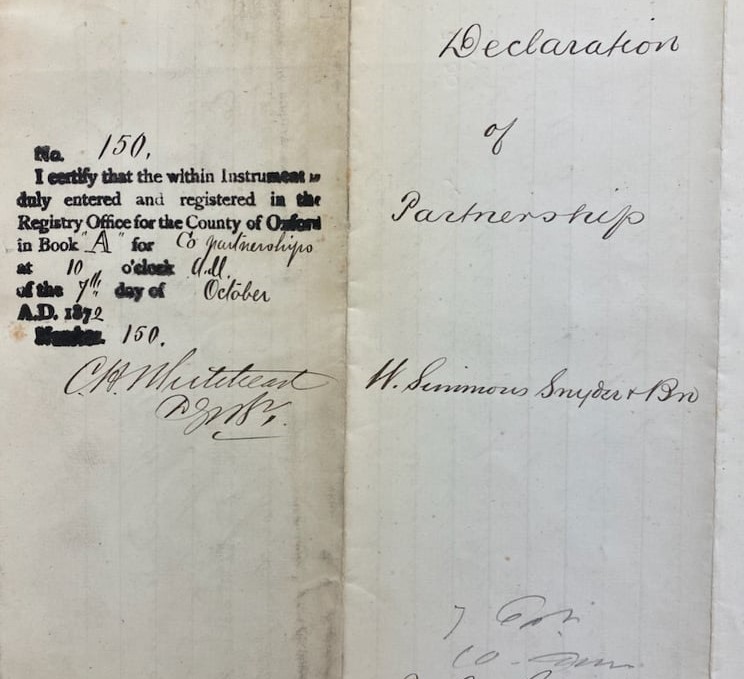 No. 150.
I certify that the within Instrument is
duly entered and registered in the
Registry Office for the County of Oxford
in Book "A" for Co partnerships
at 10 o'clock A.M.
of the 7th day of October
A.D. 1872
Number 150.
C. H. Whitehead
Declaration
of
Partnership
W. Simmons Snyder & Bro
7
10